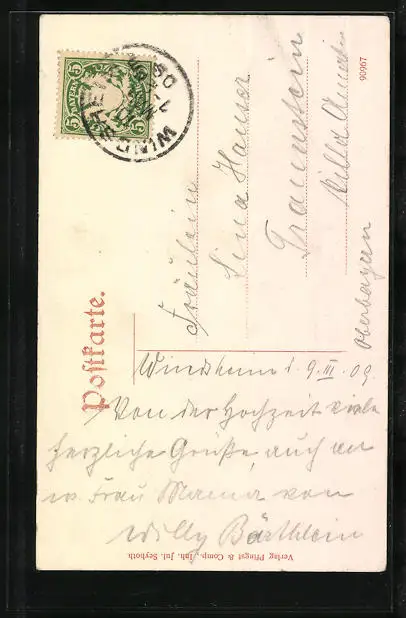 5 BAYERN 5
WINDSHEIM
Postkarte.
90967
Fräulein
Lina Hauser
Traunstein
Villa
Oberbayern
Windsheim d. 9. III. 09.
Von der Hochzeit viele
herzliche Grüße, auch an
w. Frau Mama von
Willy Bärthlein
Verlag Pfingst & Comp., Inh. Jul. Seyboth